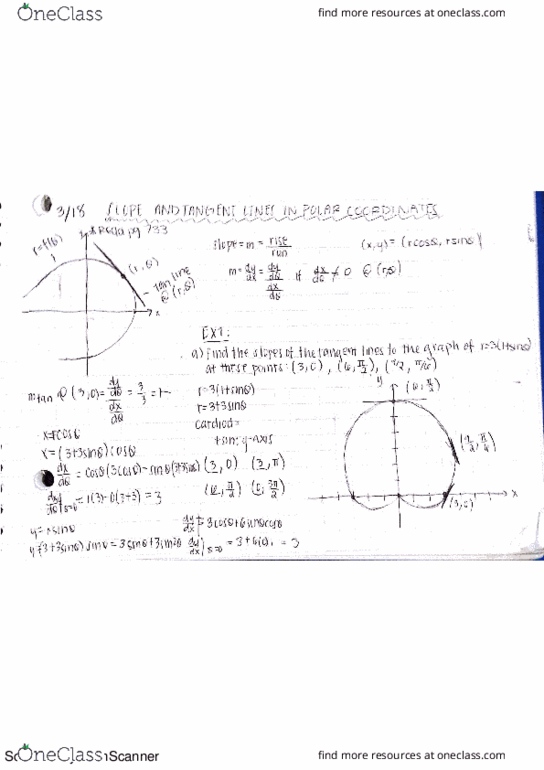 OneClass
find more resources at oneclass.com
3/18 SLOPE AND TANGENT LINES IN POLAR COORDINATES
* Read pg 733
r=f(θ)
y
(r, θ)
tan line
@ (r,θ)
x
slope = m = rise/run
(x,y) = (rcosθ, rsinθ)
m = dy/dx = (dy/dθ)/(dx/dθ) if dx/dθ ≠ 0 @ (r,θ)
EX1:
a) Find the slopes of the tangent lines to the graph of r=3(1+sinθ)
at these points: (3,0), (6, π/2),
mtan @ (3,0) = (dy/dθ)/(dx/dθ) = 3/3 = 1
r=3(1+sinθ)
r=3+3sinθ
cardioid
+sin: y-axis
(3, 0) (3, π)
(6, π/2) (0, 3π/2)
x=rcosθ
x=(3+3sinθ)cosθ
dx/dθ = cosθ(3cosθ)-sinθ(3+3sinθ)
= 1(3)-0(3+3) = 3
y=rsinθ
y=(3+3sinθ)sinθ = 3sinθ+3sin²θ
= 3cosθ+6sinθcosθ
= 3+6(0) = 3
y
(6, π/2)
(3,0)
x
OneClass
Scanner
find more resources at oneclass.com